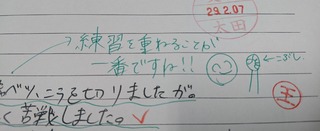 29.2.07
太田
練習を重ねることが
一番ですね!!
←こぶし
ベツ、こうを切りましたが。
く苦戦しました。
王